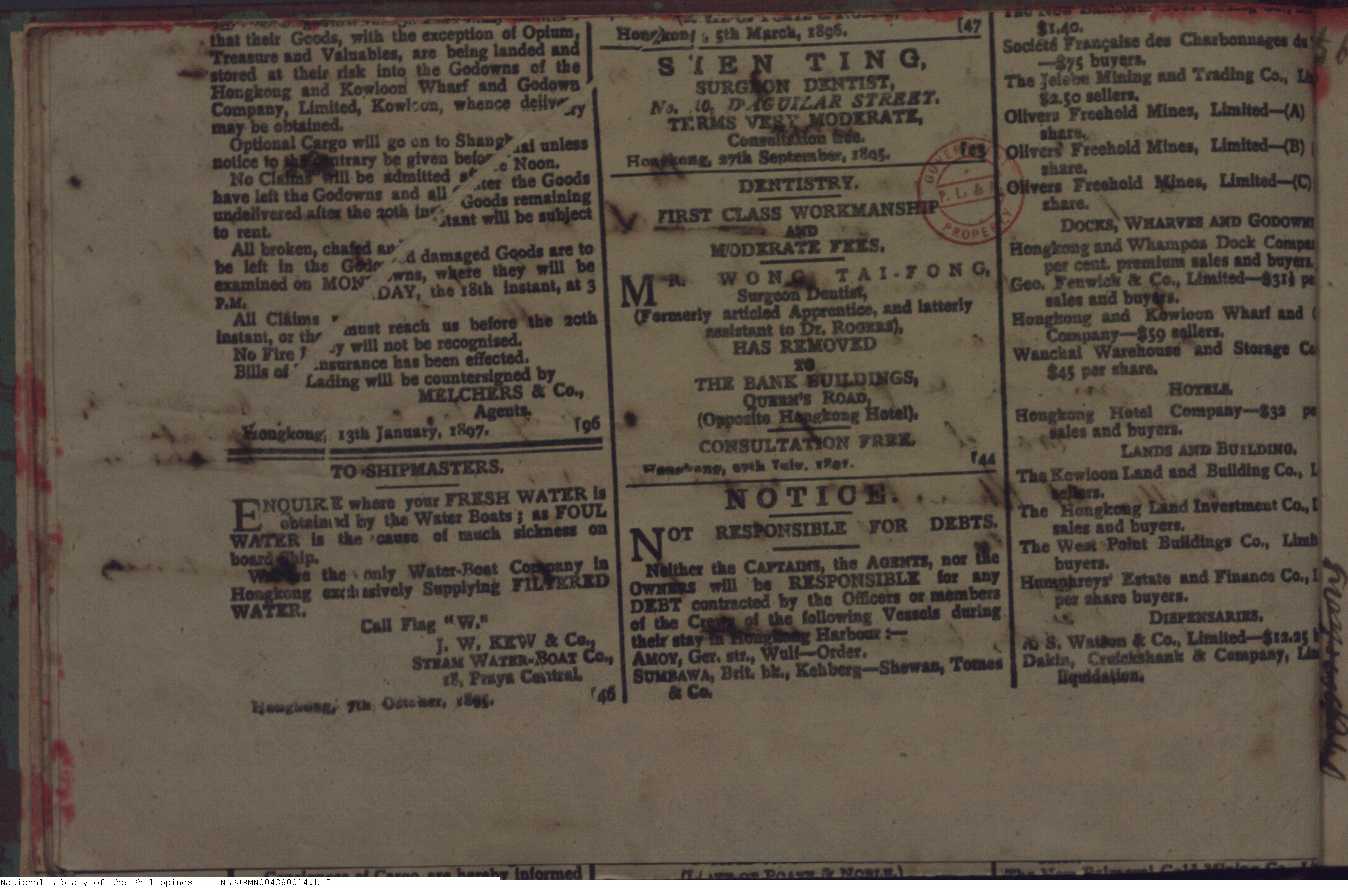 that their Goods, with the exception of Opium,
Treasure and Valuables, are being landed and
stored at their risk into the Godowns of the
Hongkong and Kowloon Wharf and Godown
Company, Limited, Kowloon, whence delivery
may be obtained.
Optional Cargo will go on to unless
notice to the contrary be given Noon.
No Claims will be admitted the Goods
have left the Godowns and all Goods remaining
undelivered after the 20th instant will be subject
to rent.
All broken, chafed and damaged Goods are to
be left in the where they will be
examined on MONDAY, the 18th instant, at 3
P.M.
All Claims must reach us before the 20th
instant, or they will not be recognised.
No Fire Insurance has been effected.
Bills of Lading will be countersigned by
MELCHERS & Co.,
Agents.
Hongkong, 13th January, 1897. [96
TO SHIPMASTERS.
ENQUIRE where your FRESH WATER is
obtained by the Water Boats; as FOUL
WATER is the cause of much sickness on
board Ship.
We are the only Water-Boat Company in
Hongkong exclusively Supplying FILTERED
WATER.
Call Flag "W."
J. W. KEW & Co.,
STEAM WATER-BOAT Co.,
18, Praya Central.
Hongkong, 7th October, 1895. [46
Hongkong, 5th March, 1896. [47
SIEN TING,
SURGEON DENTIST,
No. 10, D'AGUILAR STREET.
TERMS VERY MODERATE,
Consultation free.
Hongkong, 27th September, 1895.
DENTISTRY.
FIRST CLASS WORKMANSHIP
AND
MODERATE FEES.
MR. WONG TAI-FONG,
Surgeon Dentist,
(Formerly articled Apprentice, and latterly
assistant to Dr. ROGERS),
HAS REMOVED
TO
THE BANK BUILDINGS,
QUEEN'S ROAD,
(Opposite Hongkong Hotel).
CONSULTATION FREE.
Hongkong, 27th July, [44
NOTICE.
NOT RESPONSIBLE FOR DEBTS.
Neither the CAPTAINS, the AGENTS, nor the
OWNERS will be RESPONSIBLE for any
DEBT contracted by the Officers or members
of the Crews of the following Vessels during
their stay in Hongkong Harbour:—
AMOY, Ger. str., Wulf—Order.
SUMBAWA, Brit. bk., Kehberg—Shewan, Tomes
& Co.
$1.40.
Société Française des Charbonnages du
—$75 buyers.
The Jelebu Mining and Trading Co.,
$2.50 sellers.
Olivers Freehold Mines, Limited—(A)
share.
Olivers Freehold Mines, Limited—(B)
share.
Olivers Freehold Mines, Limited—(C)
share.
DOCKS, WHARVES AND GODOWNS
Hongkong and Whampoa Dock
per cent. premium sales and buyers.
Geo. Fenwick & Co., Limited—$31½
sales and buyers.
Hongkong and Kowloon Wharf and
Company—$59 sellers.
Wanchai Warehouse and Storage
$45 per share.
HOTELS.
Hongkong Hotel Company—$32
sales and buyers.
LANDS AND BUILDING.
The Kowloon Land and Building Co.,
sellers.
The Hongkong Land Investment Co.,
sales and buyers.
The West Point Buildings Co.,
buyers.
Humphreys' Estate and Finance Co.,
per share buyers.
DISPENSARIES.
A. S. Watson & Co., Limited—$12.25
Dakin, Cruickshank & Company,
liquidation.
PROPERTY
National Library of the Philippines